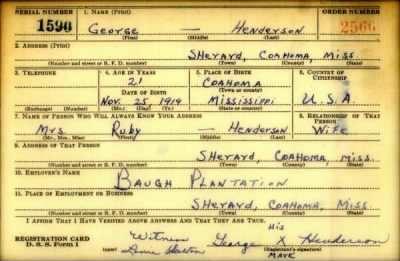 SERIAL NUMBER 1. NAME (Print) ORDER NUMBER
1590 GEORGE HENDERSON 2566
(First) (Middle) (Last)
2. ADDRESS (Print)
SHERARD, COAHOMA, MISS.
(Number and street or R. F. D. number) (Town) (County) (State)
3. TELEPHONE 4. AGE IN YEARS 5. PLACE OF BIRTH 6. COUNTRY OF CITIZENSHIP
21 COAHOMA
DATE OF BIRTH (Town or county)
NOV. 25, 1919 MISSISSIPPI U.S.A.
(Exchange) (Number) (Mo.) (Day) (Yr.) (State or country)
7. NAME OF PERSON WHO WILL ALWAYS KNOW YOUR ADDRESS 8. RELATIONSHIP OF THAT PERSON
MRS. RUBY — HENDERSON WIFE
(Mr., Mrs., Miss) (First) (Middle) (Last)
9. ADDRESS OF THAT PERSON
SHERARD, COAHOMA, MISS.
(Number and street or R. F. D. number) (Town) (County) (State)
10. EMPLOYER'S NAME
BAUGH PLANTATION
11. PLACE OF EMPLOYMENT OR BUSINESS
SHERARD, COAHOMA, MISS.
(Number and street or R. F. D. number) (Town) (County) (State)
I AFFIRM THAT I HAVE VERIFIED ABOVE ANSWERS AND THAT THEY ARE TRUE.
REGISTRATION CARD Witness His
D. S. S. Form 1 George X Henderson
(Registrant's signature)
MARK